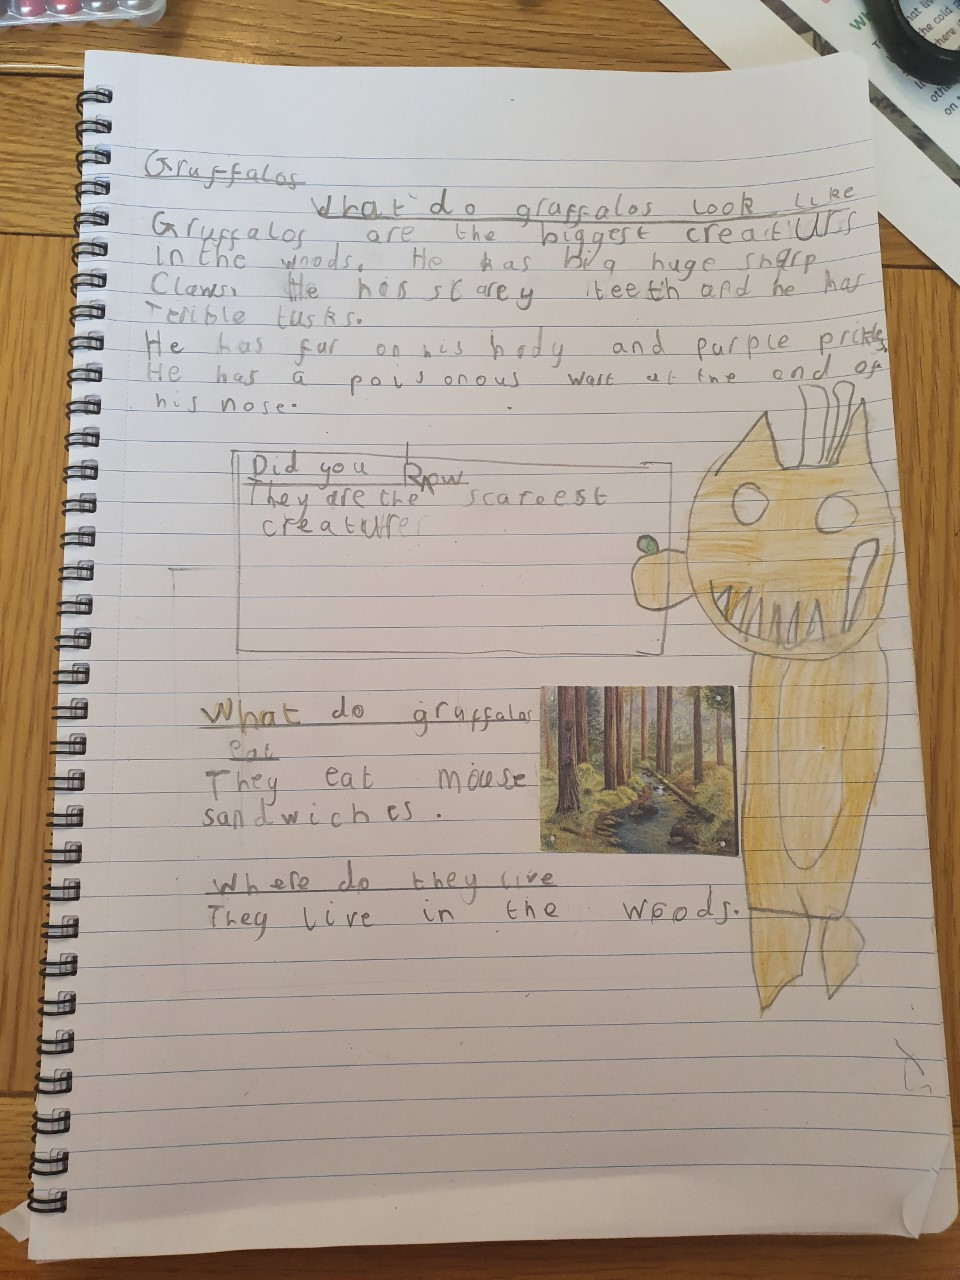 Gruffalos
What do graffalos look like
Gruffalos are the biggest creatures
in the woods. He has big huge sharp
Claws. He has scarey teeth and he has
Terible tusks.
He has fur on his body and purple prickles.
He has a poisonous wart at the end of
his nose.
Did you know
They are the scareest
creature
What do gruffalos
eat
They eat mouse
sandwiches.
Where do they live
They live in the woods.
the cold
here
othe
on